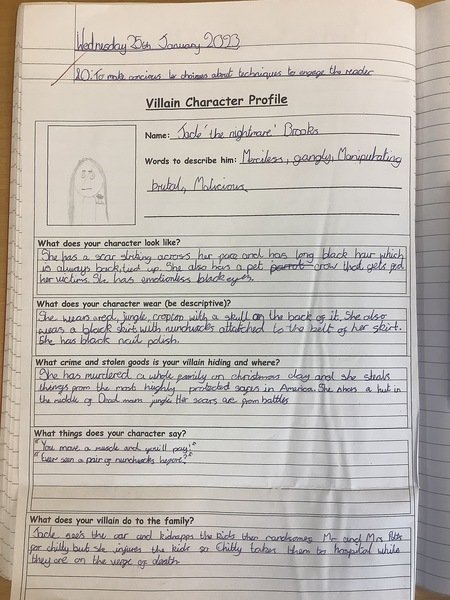 Wednesday 25th January 2023
LO: To make concious choices about techniques to engage the reader
Villain Character Profile
Name: Jade 'the nightmare' Brooks
Words to describe him: Merciless, gangly, Manipulating
brutal, Malicious
What does your character look like?
She has a scar striking across her face and has long black hair which
is always back, tied up. She also has a pet parrot crow that gets fed
her victims. She has emotionless black eyes.
What does your character wear (be descriptive)?
She wears a red, jungle, croptop with a skull on the back of it. She also
wears a black skirt with nunchucks attatched to the belt of her skirt.
She has black nail polish.
What crime and stolen goods is your villain hiding and where?
She has murdered a whole family on christmas day and she steals
things from the most highly protected safes in America. She owns a hut in
the middle of Dead mans jungle. Her scars are from battles
What things does your character say?
"You move a muscle and you'll pay!"
"Ever seen a pair of nunchucks before?"
What does your villain do to the family?
Jade sees the car and kidnapps the kids then randsomes Mr and Mrs Potts
for chitty but she injures the kids so Chitty takes them to hospital while
they are on the verge of death.